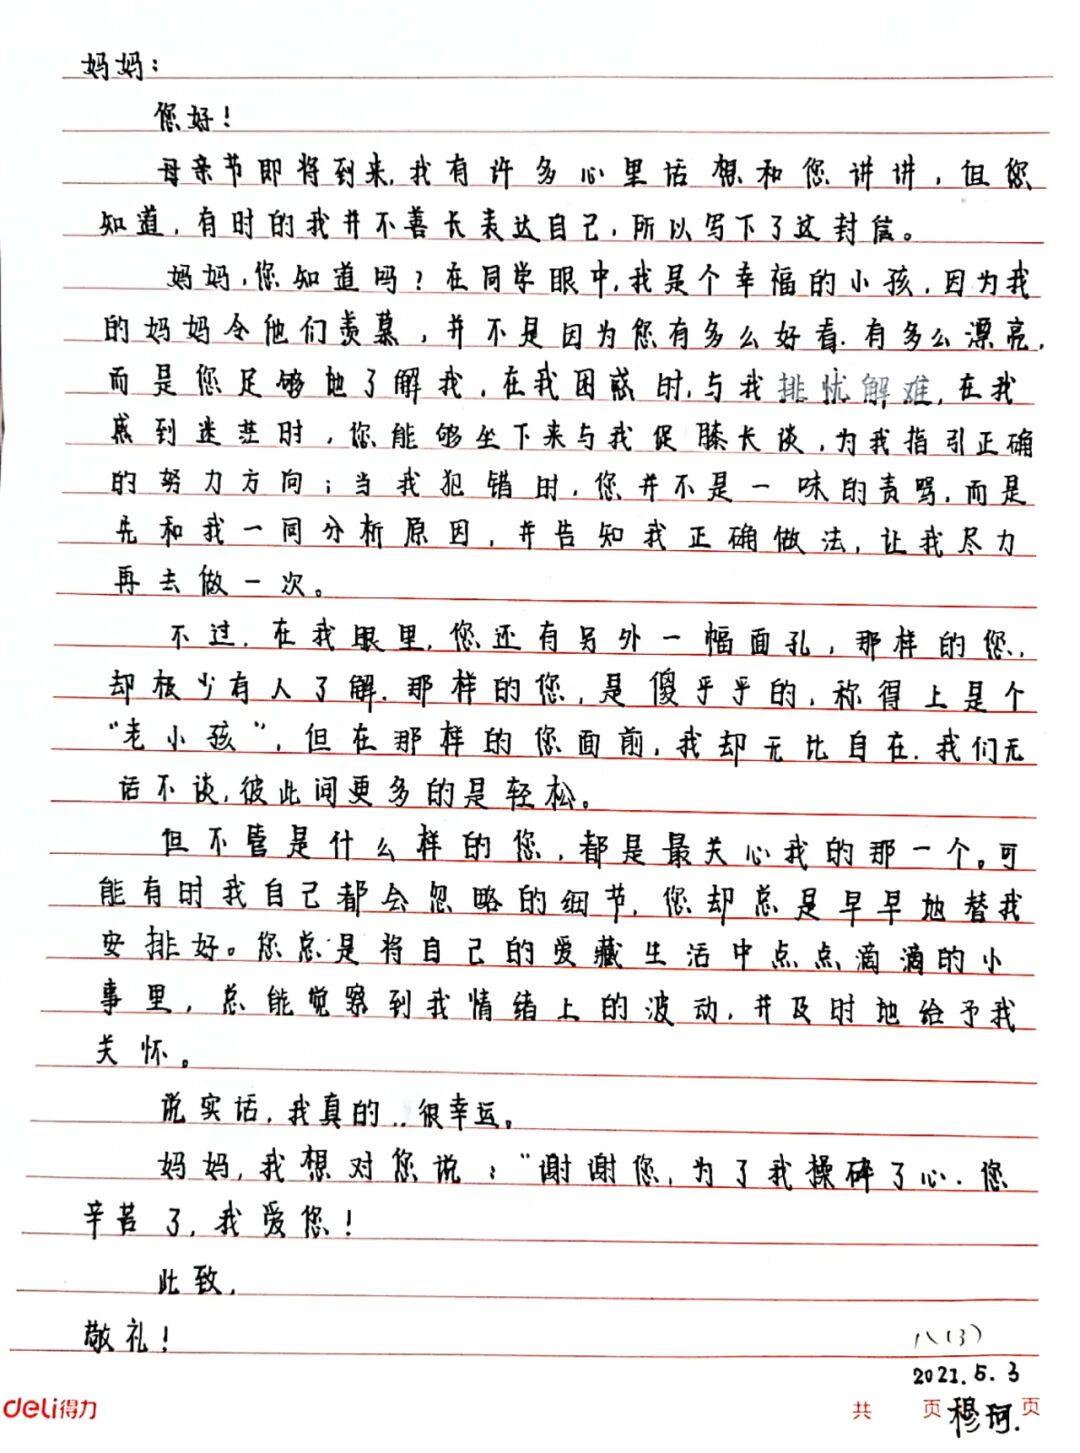 妈妈：
您好！
母亲节即将到来，我有许多心里话想和您讲讲，但您
知道，有时的我并不善长表达自己，所以写下了这封信。
妈妈，您知道吗？在同学眼中，我是个幸福的小孩，因为我
的妈妈令他们羡慕，并不是因为您有多么好看.有多么漂亮，
而是您足够地了解我，在我困惑时，与我排忧解难，在我
感到迷茫时，您能够坐下来与我促膝长谈，为我指引正确
的努力方向；当我犯错时，您并不是一味的责骂，而是
先和我一同分析原因，并告知我正确做法，让我尽力
再去做一次。
不过，在我眼里，您还有另外一幅面孔，那样的您，
却极少有人了解.那样的您，是傻乎乎的，称得上是个
“老小孩”，但在那样的您面前，我却无比自在.我们无
话不谈，彼此间更多的是轻松。
但不管是什么样的您，都是最关心我的那一个。可
能有时我自己都会忽略的细节，您却总是早早地替我
安排好。您总是将自己的爱藏生活中点点滴滴的小
事里，总能觉察到我情绪上的波动，并及时地给予我
关怀。
说实话，我真的..很幸运。
妈妈，我想对您说：“谢谢您，为了我操碎了心.您
辛苦了，我爱您！
此致，
敬礼！
八（3）
2021.5.3
deli得力
共 页 页
穆珂.